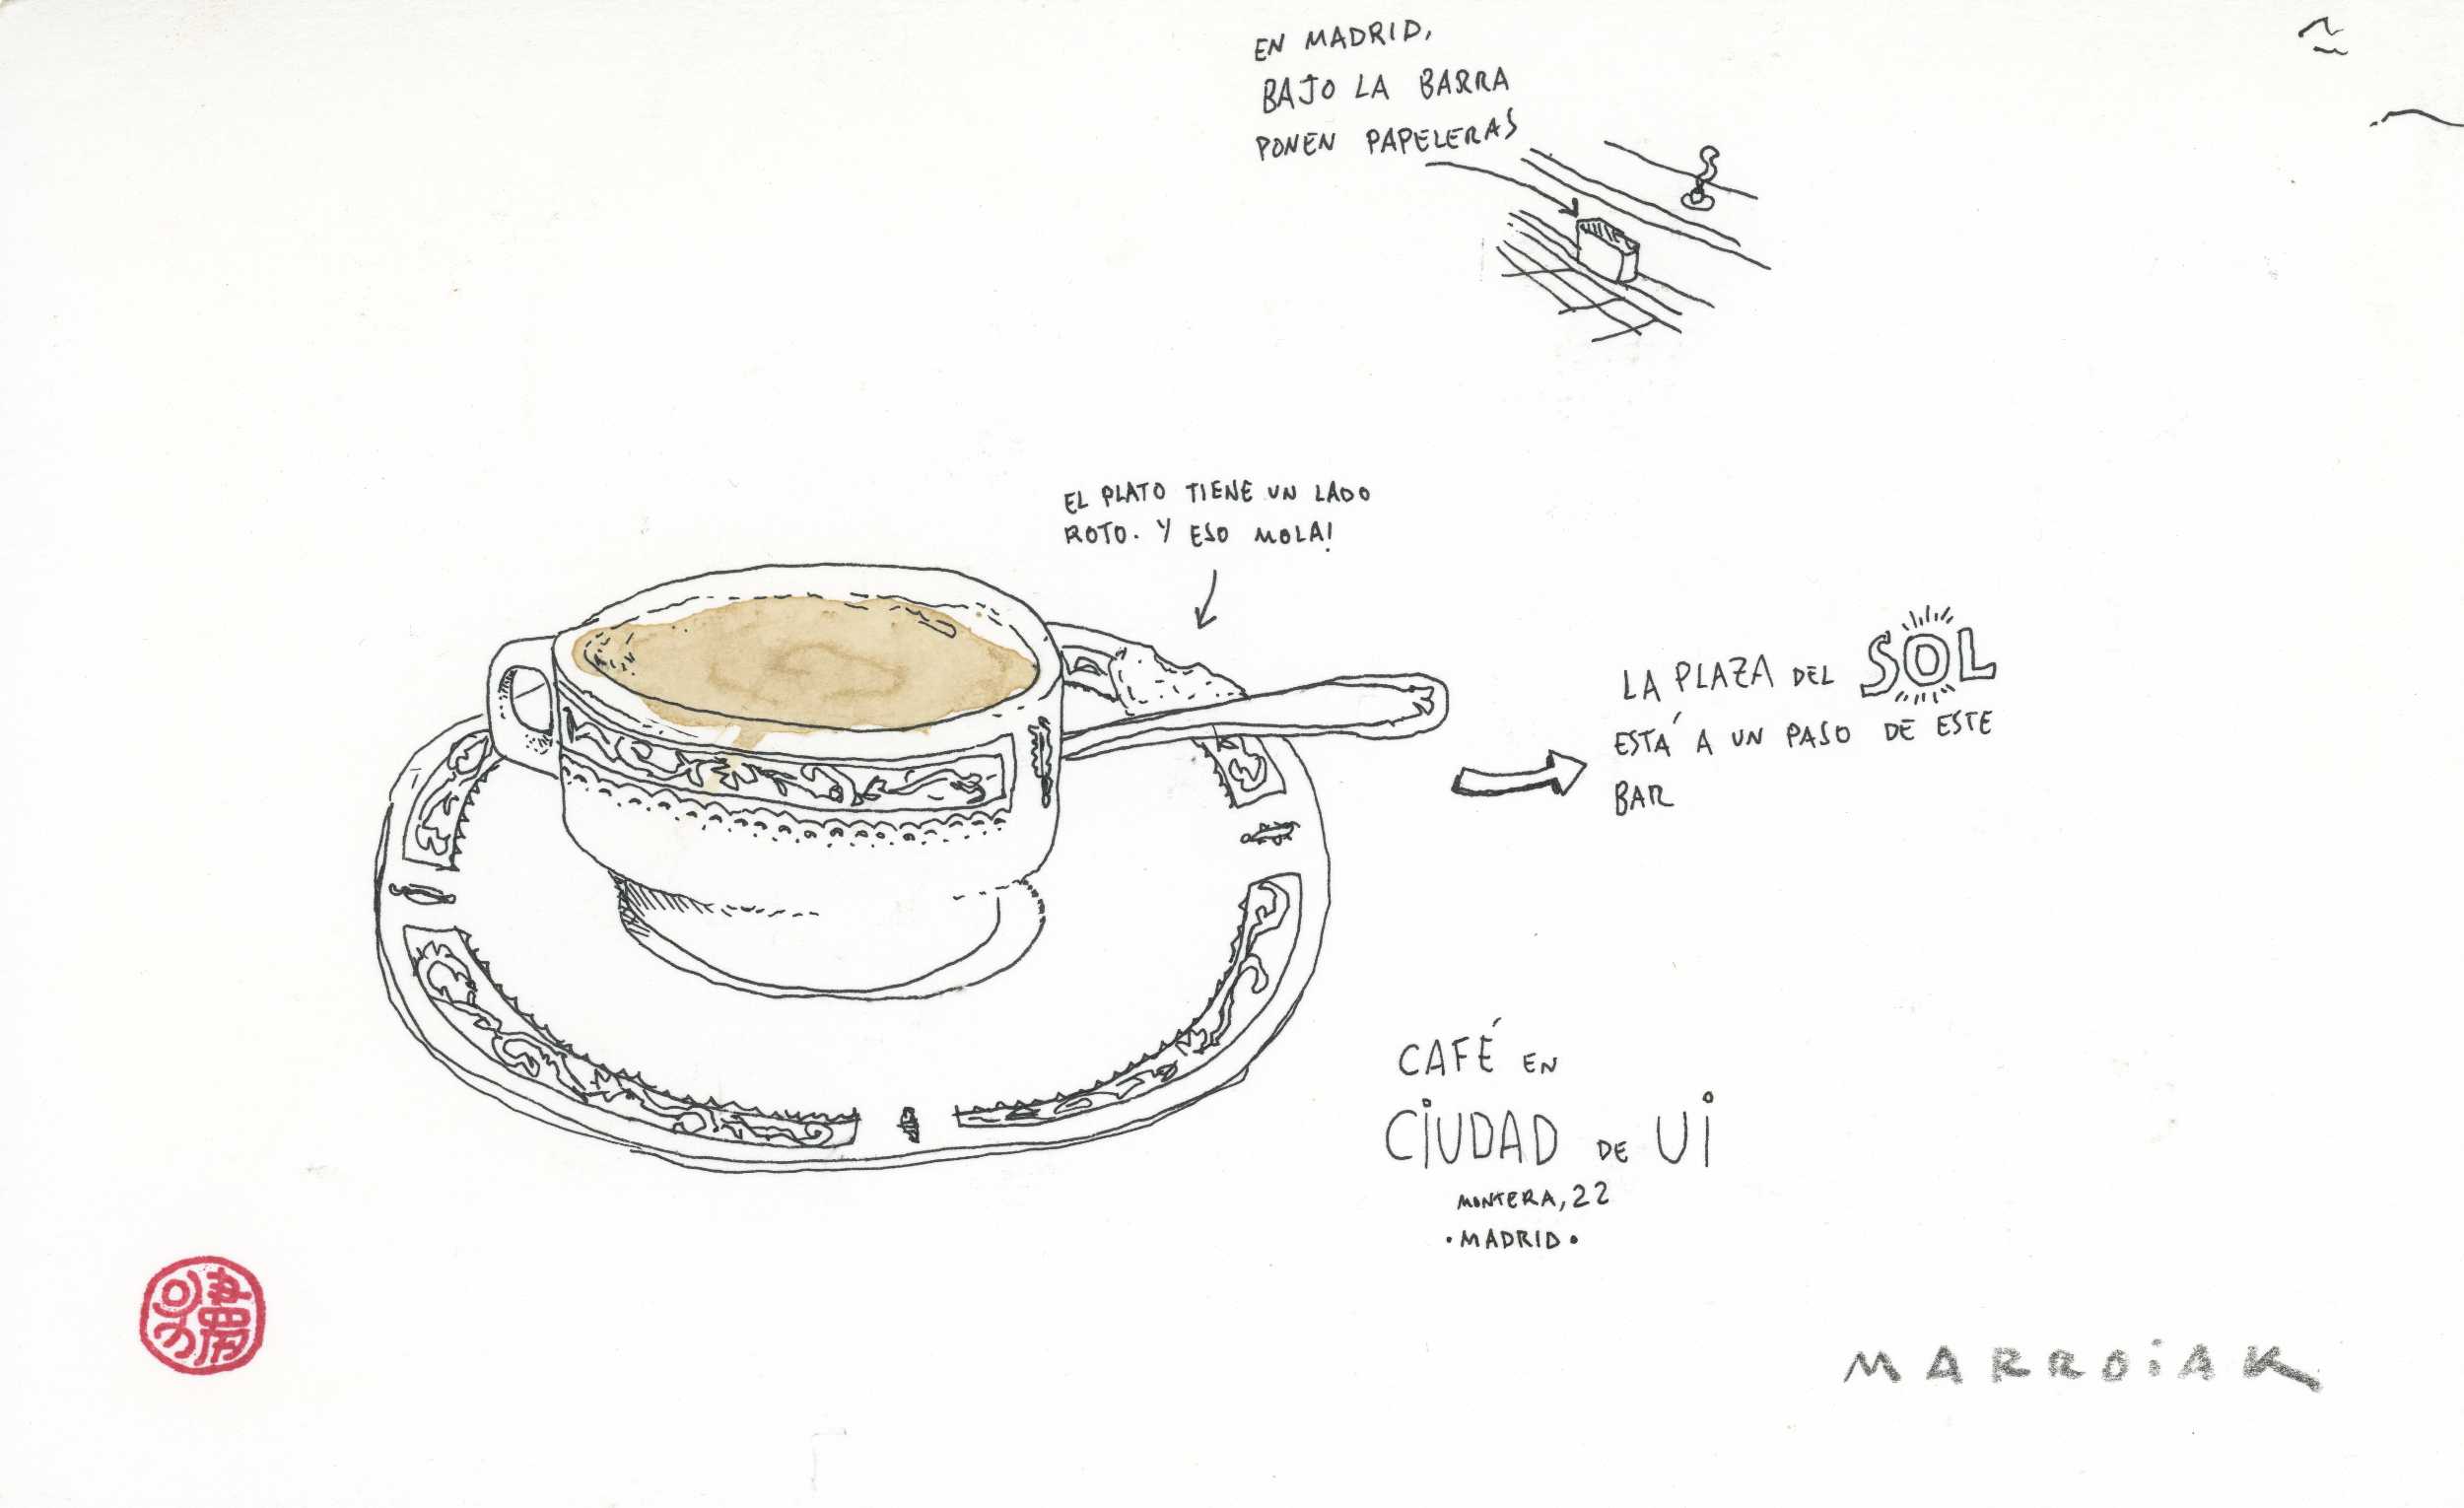 EN MADRID,
BAJO LA BARRA
PONEN PAPELERAS
EL PLATO TIENE UN LADO
ROTO. Y ESO MOLA!
LA PLAZA DEL SOL
ESTÁ A UN PASO DE ESTE
BAR
CAFÉ EN
CiUDAD DE Ui
MONTERA, 22
• MADRID •
MARROiAK